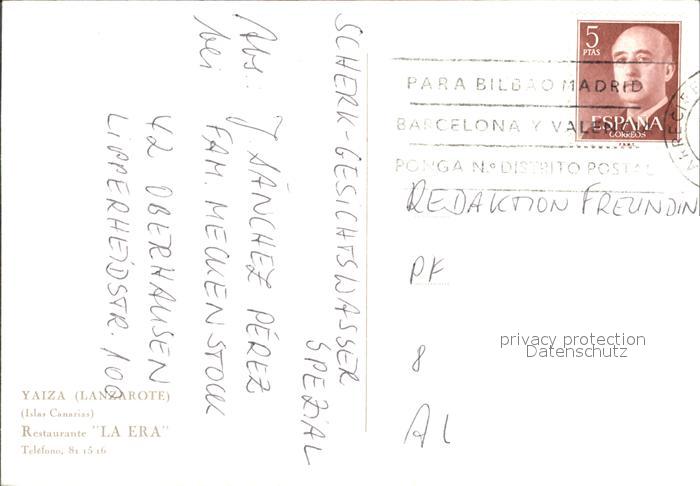 SCHERK-GESICHTSWASSER
SPEZIAL
Abs.: J. SÁNCHEZ PÉREZ
bei FAM. MECKENSTOCK
42 OBERHAUSEN
LIPPERHEIDSTR. 100
YAIZA (LANZAROTE)
(Islas Canarias)
Restaurante "LA ERA"
Teléfono, 81 15 16
5
PTAS
ESPAÑA
CORREOS
PARA BILBAO MADRID
BARCELONA Y VALEN
PONGA N.º DISTRITO POSTAL
ARRECIFE
REDAKTION FREUNDIN
PF
8
privacy protection
Datenschutz